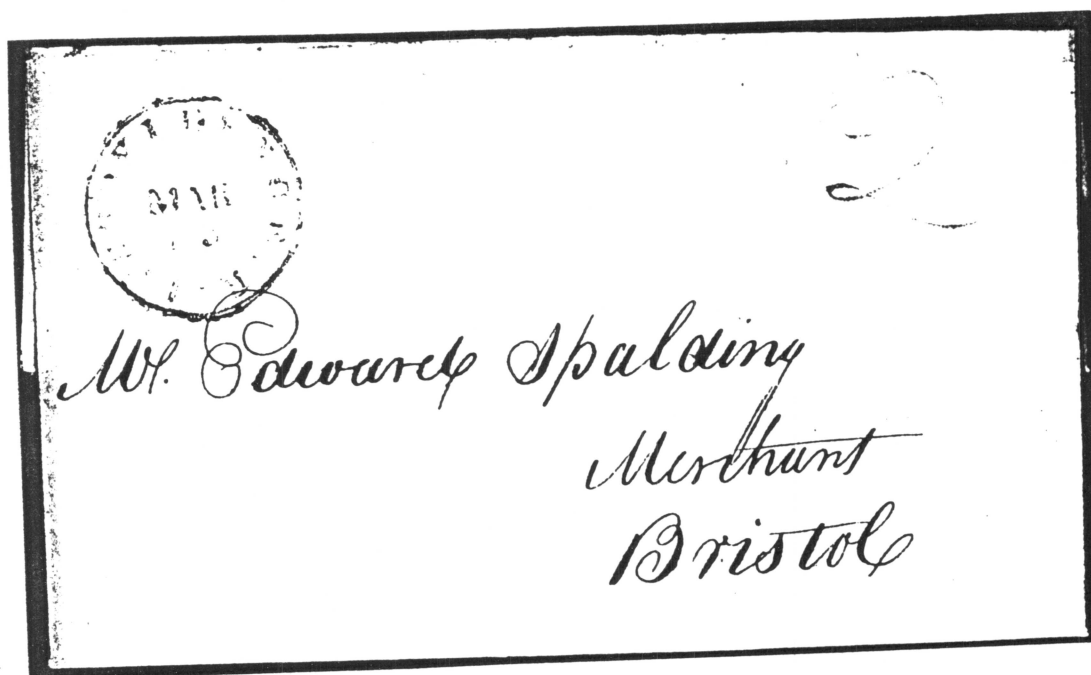 MAR
2
Mr. Edward Spalding
Merchant
Bristol